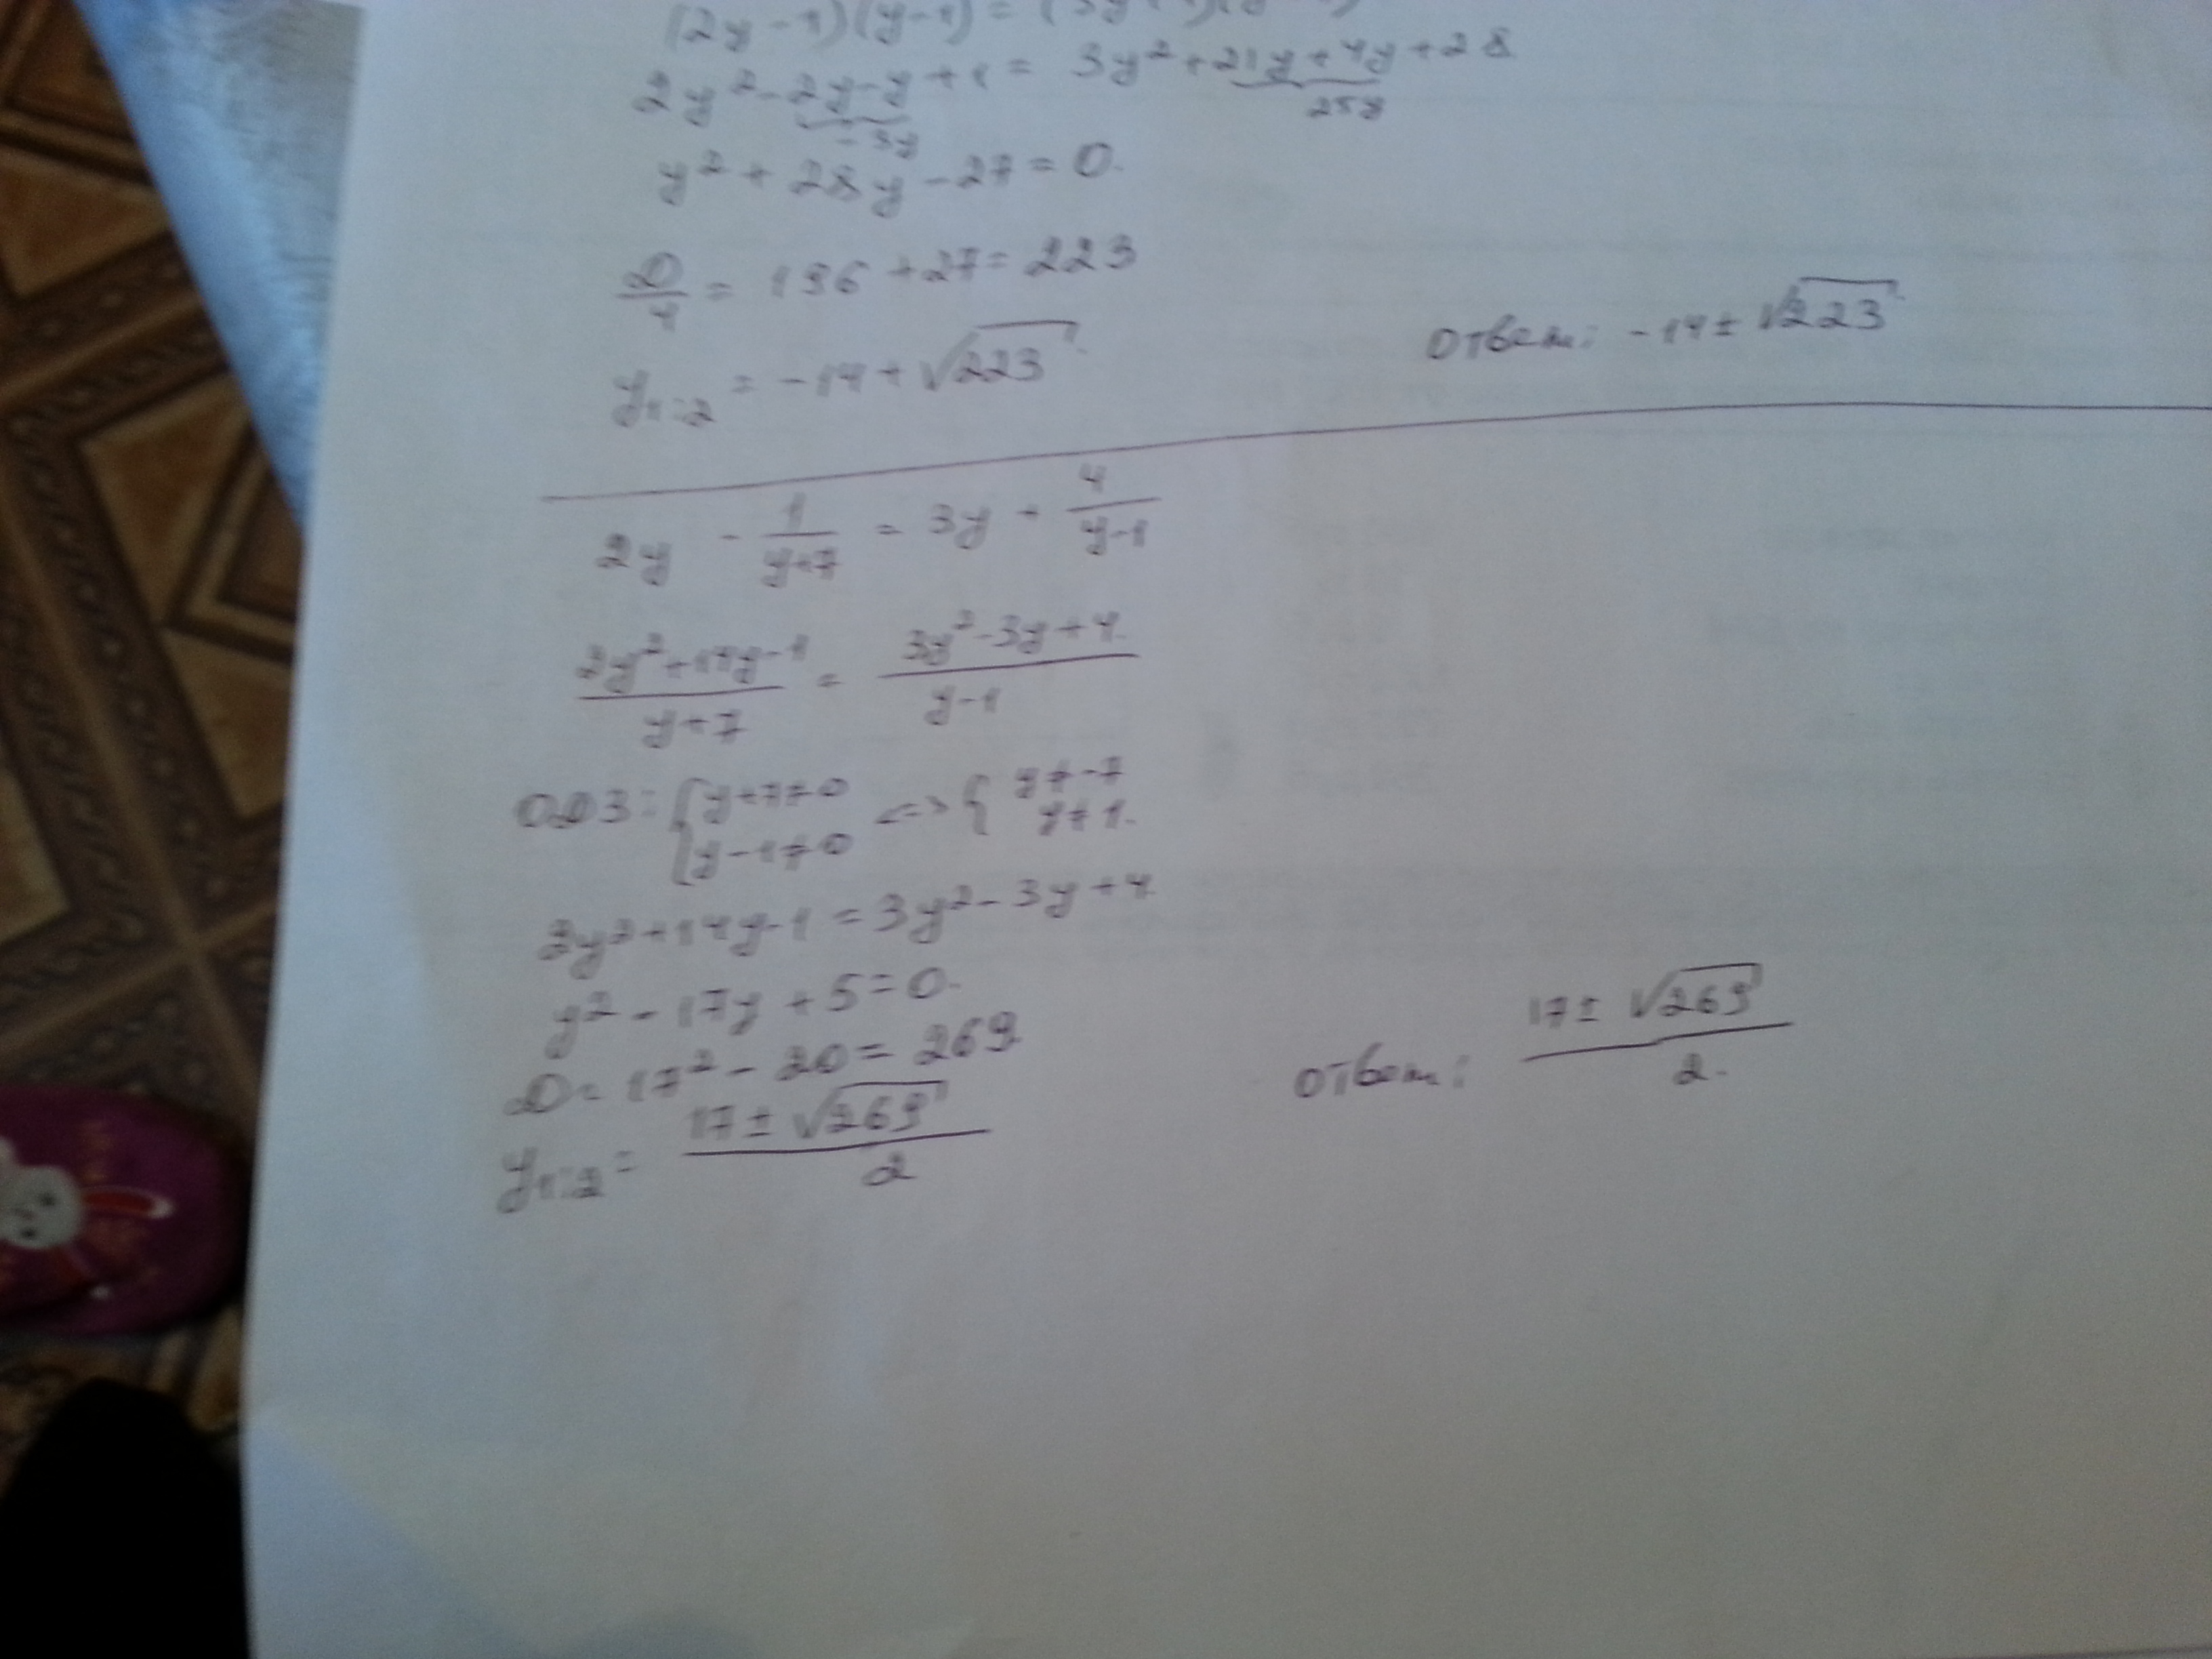 (2y-1)(y-1) = (3y+4)(y
2y²-2y-y+1 = 3y²+21y+4y+28
-3y 25y
y²+28y-27=0.
D/4 = 196+27=223
y₁;₂ = -14+√223
Ответ: -14±√223
2y - 1/(y+7) = 3y + 4/(y-1)
(2y²+14y-1)/(y+7) = (3y²-3y+4)/(y-1)
ОДЗ: {y+7≠0 <=> { y≠-7
{y-1≠0 y≠1.
2y²+14y-1=3y²-3y+4
y²-17y+5=0.
D=17²-20=269
y₁;₂= (17±√269)/2
Ответ: (17±√269)/2.